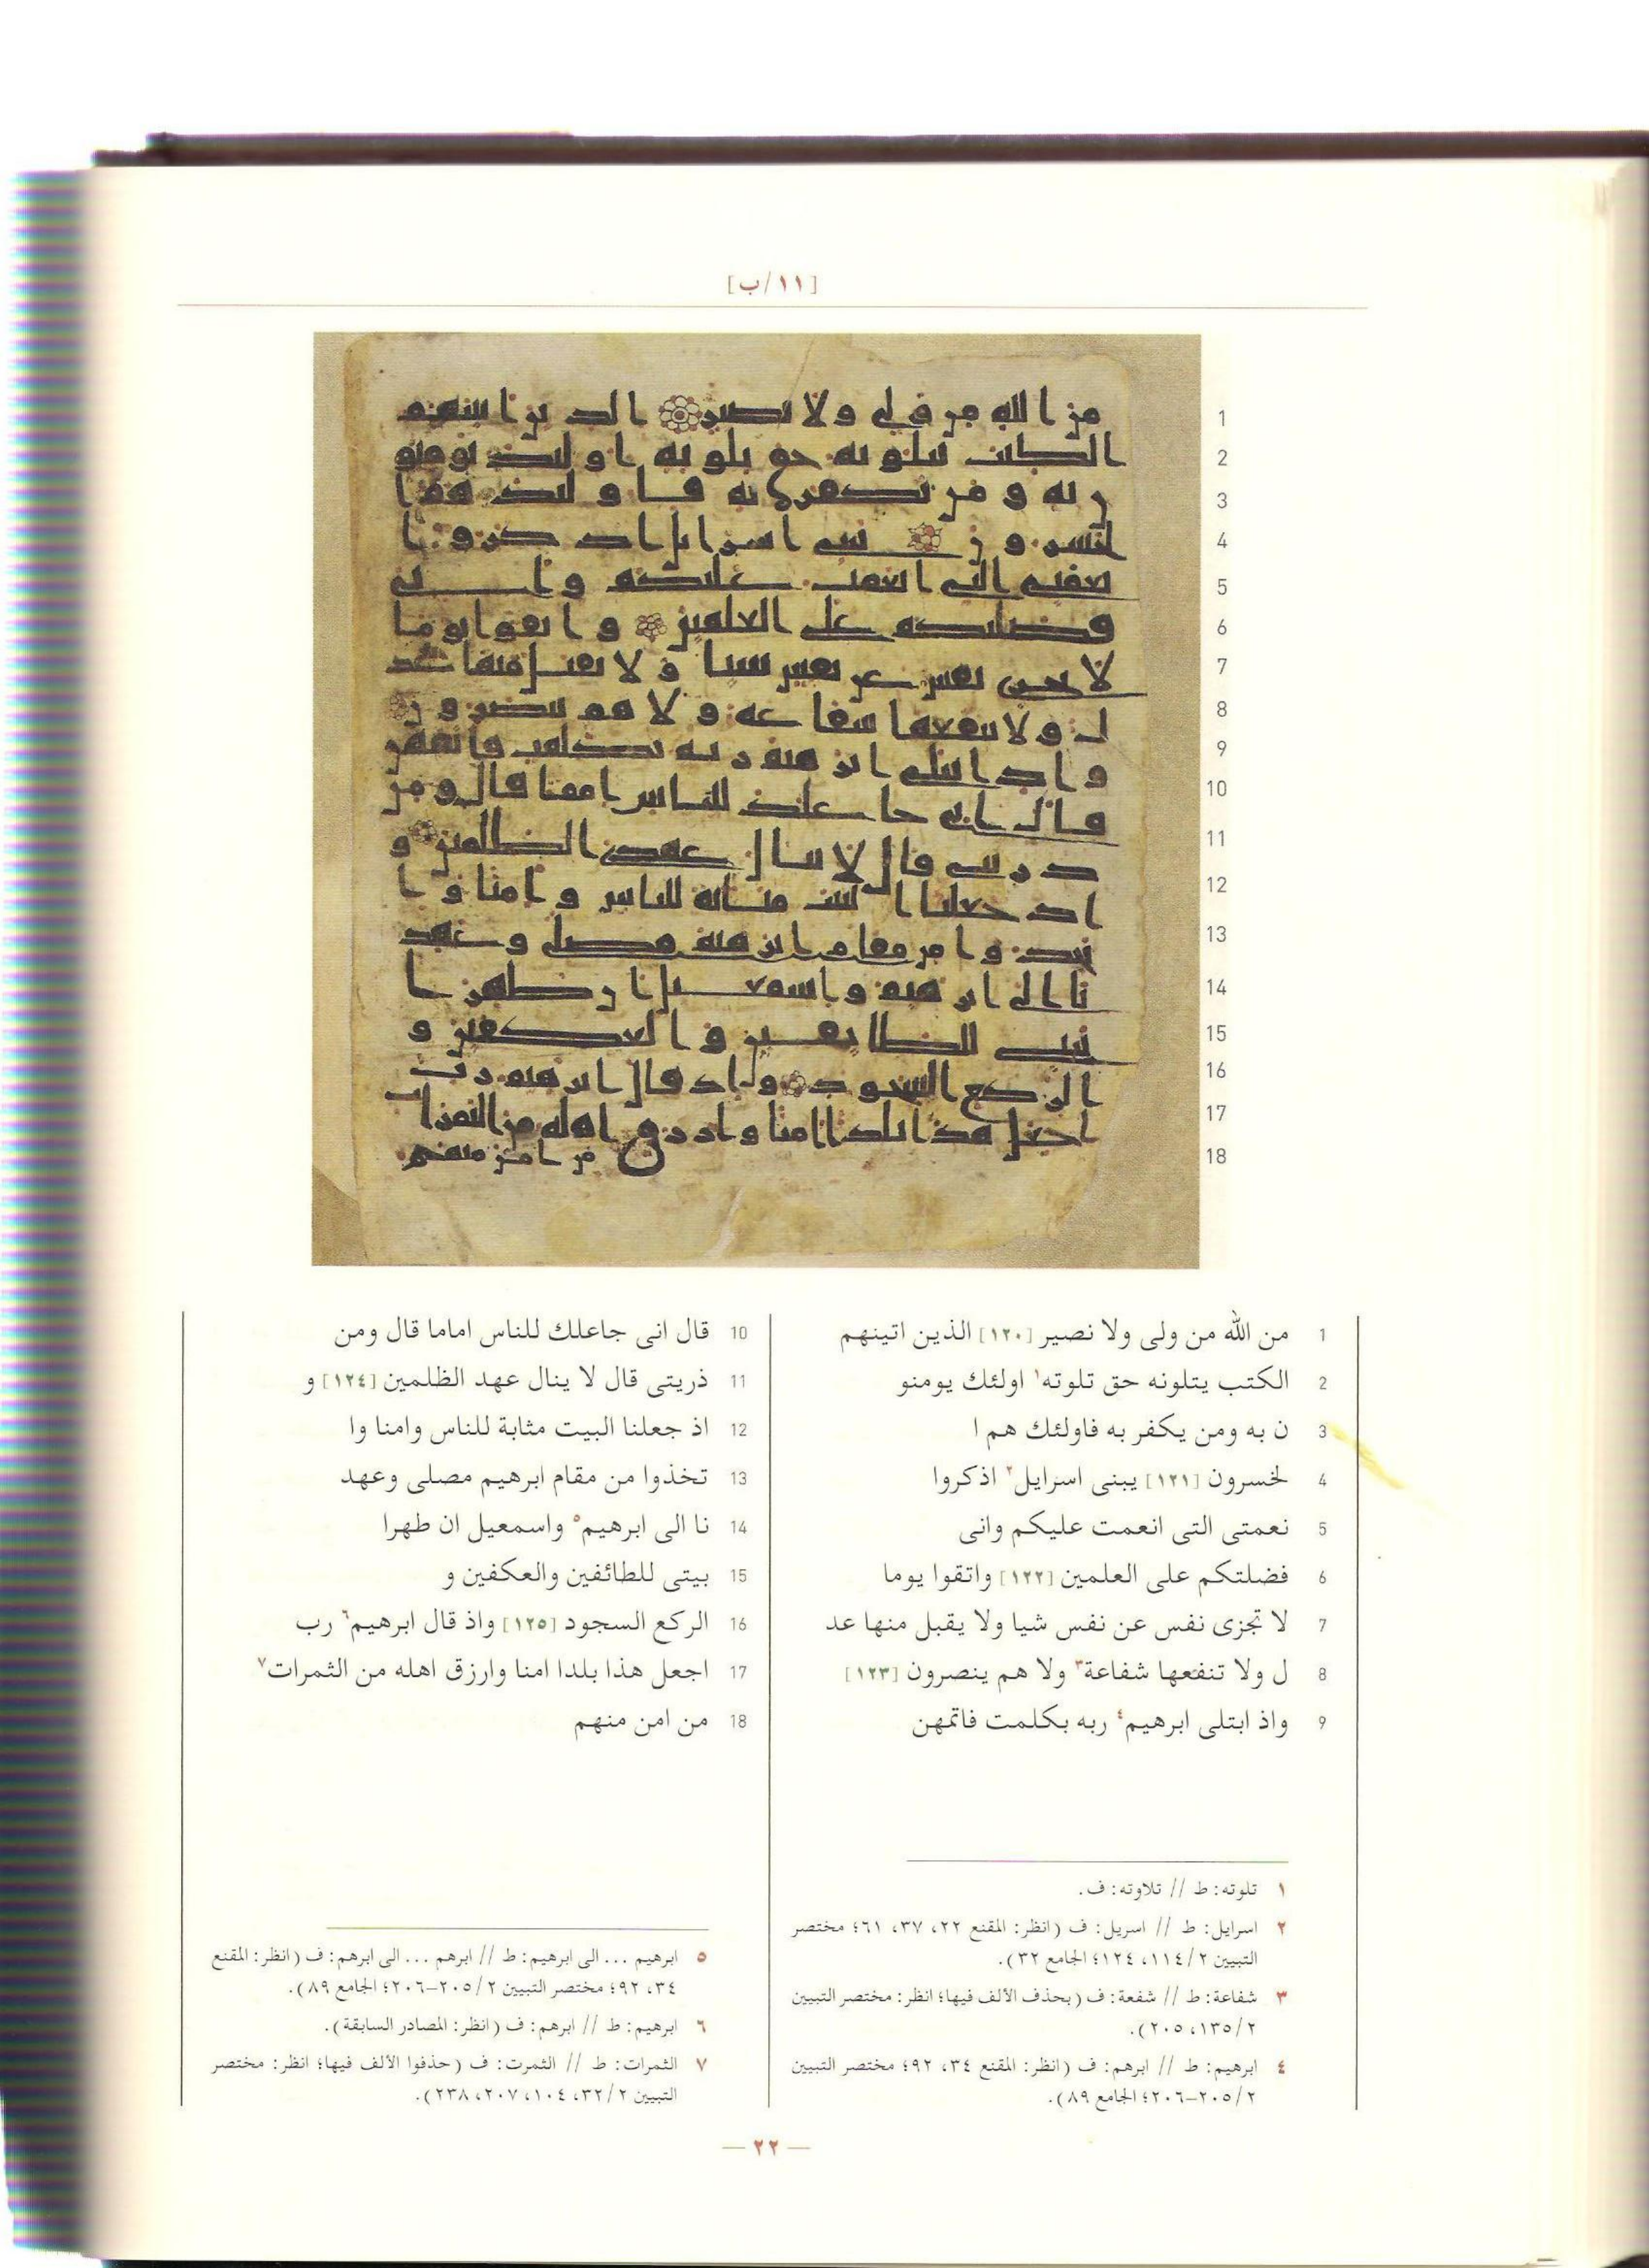 [١١/ب]
1 من الله من ولى ولا نصير [١٢٠] الذين اتينهم
2 الكتب يتلونه حق تلوته١ اولئك يومنو
3 ن به ومن يكفر به فاولئك هم ا
4 لخسرون [١٢١] يبنى اسرايل٢ اذكروا
5 نعمتى التى انعمت عليكم وانى
6 فضلتكم على العلمين [١٢٢] واتقوا يوما
7 لا تجزى نفس عن نفس شيا ولا يقبل منها عد
8 ل ولا تنفعها شفاعة٣ ولا هم ينصرون [١٢٣]
9 واذ ابتلى ابرهيم٤ ربه بكلمت فاتمهن
10 قال انى جاعلك للناس اماما قال ومن
11 ذريتى قال لا ينال عهد الظلمين [١٢٤] و
12 اذ جعلنا البيت مثابة للناس وامنا وا
13 تخذوا من مقام ابرهيم مصلى وعهد
14 نا الى ابرهيم٥ واسمعيل ان طهرا
15 بيتى للطائفين والعكفين و
16 الركع السجود [١٢٥] واذ قال ابرهيم٦ رب
17 اجعل هذا بلدا امنا وارزق اهله من الثمرات٧
18 من امن منهم
١ تلوته: ط // تلاوته: ف.
٢ اسرايل: ط // اسريل: ف (انظر: المقنع ٢٢، ٣٧، ٦١؛ مختصر
التبيين ٢/١١٤، ١٢٤؛ الجامع ٣٢).
٣ شفاعة: ط // شفعة: ف (بحذف الألف فيها؛ انظر: مختصر التبيين
٢/١٣٥، ٢٠٥).
٤ ابرهيم: ط // ابرهم: ف (انظر: المقنع ٣٤، ٩٢؛ مختصر التبيين
٢/٢٠٥–٢٠٦؛ الجامع ٨٩).
٥ ابرهيم ... الى ابرهيم: ط // ابرهم ... الى ابرهم: ف (انظر: المقنع
٣٤، ٩٢؛ مختصر التبيين ٢/٢٠٥–٢٠٦؛ الجامع ٨٩).
٦ ابرهيم: ط // ابرهم: ف (انظر: المصادر السابقة).
٧ الثمرات: ط // الثمرت: ف (حذفوا الألف فيها؛ انظر: مختصر
التبيين ٢/٣٢، ١٠٤، ٢٠٧، ٢٣٨).
— ٢٢ —